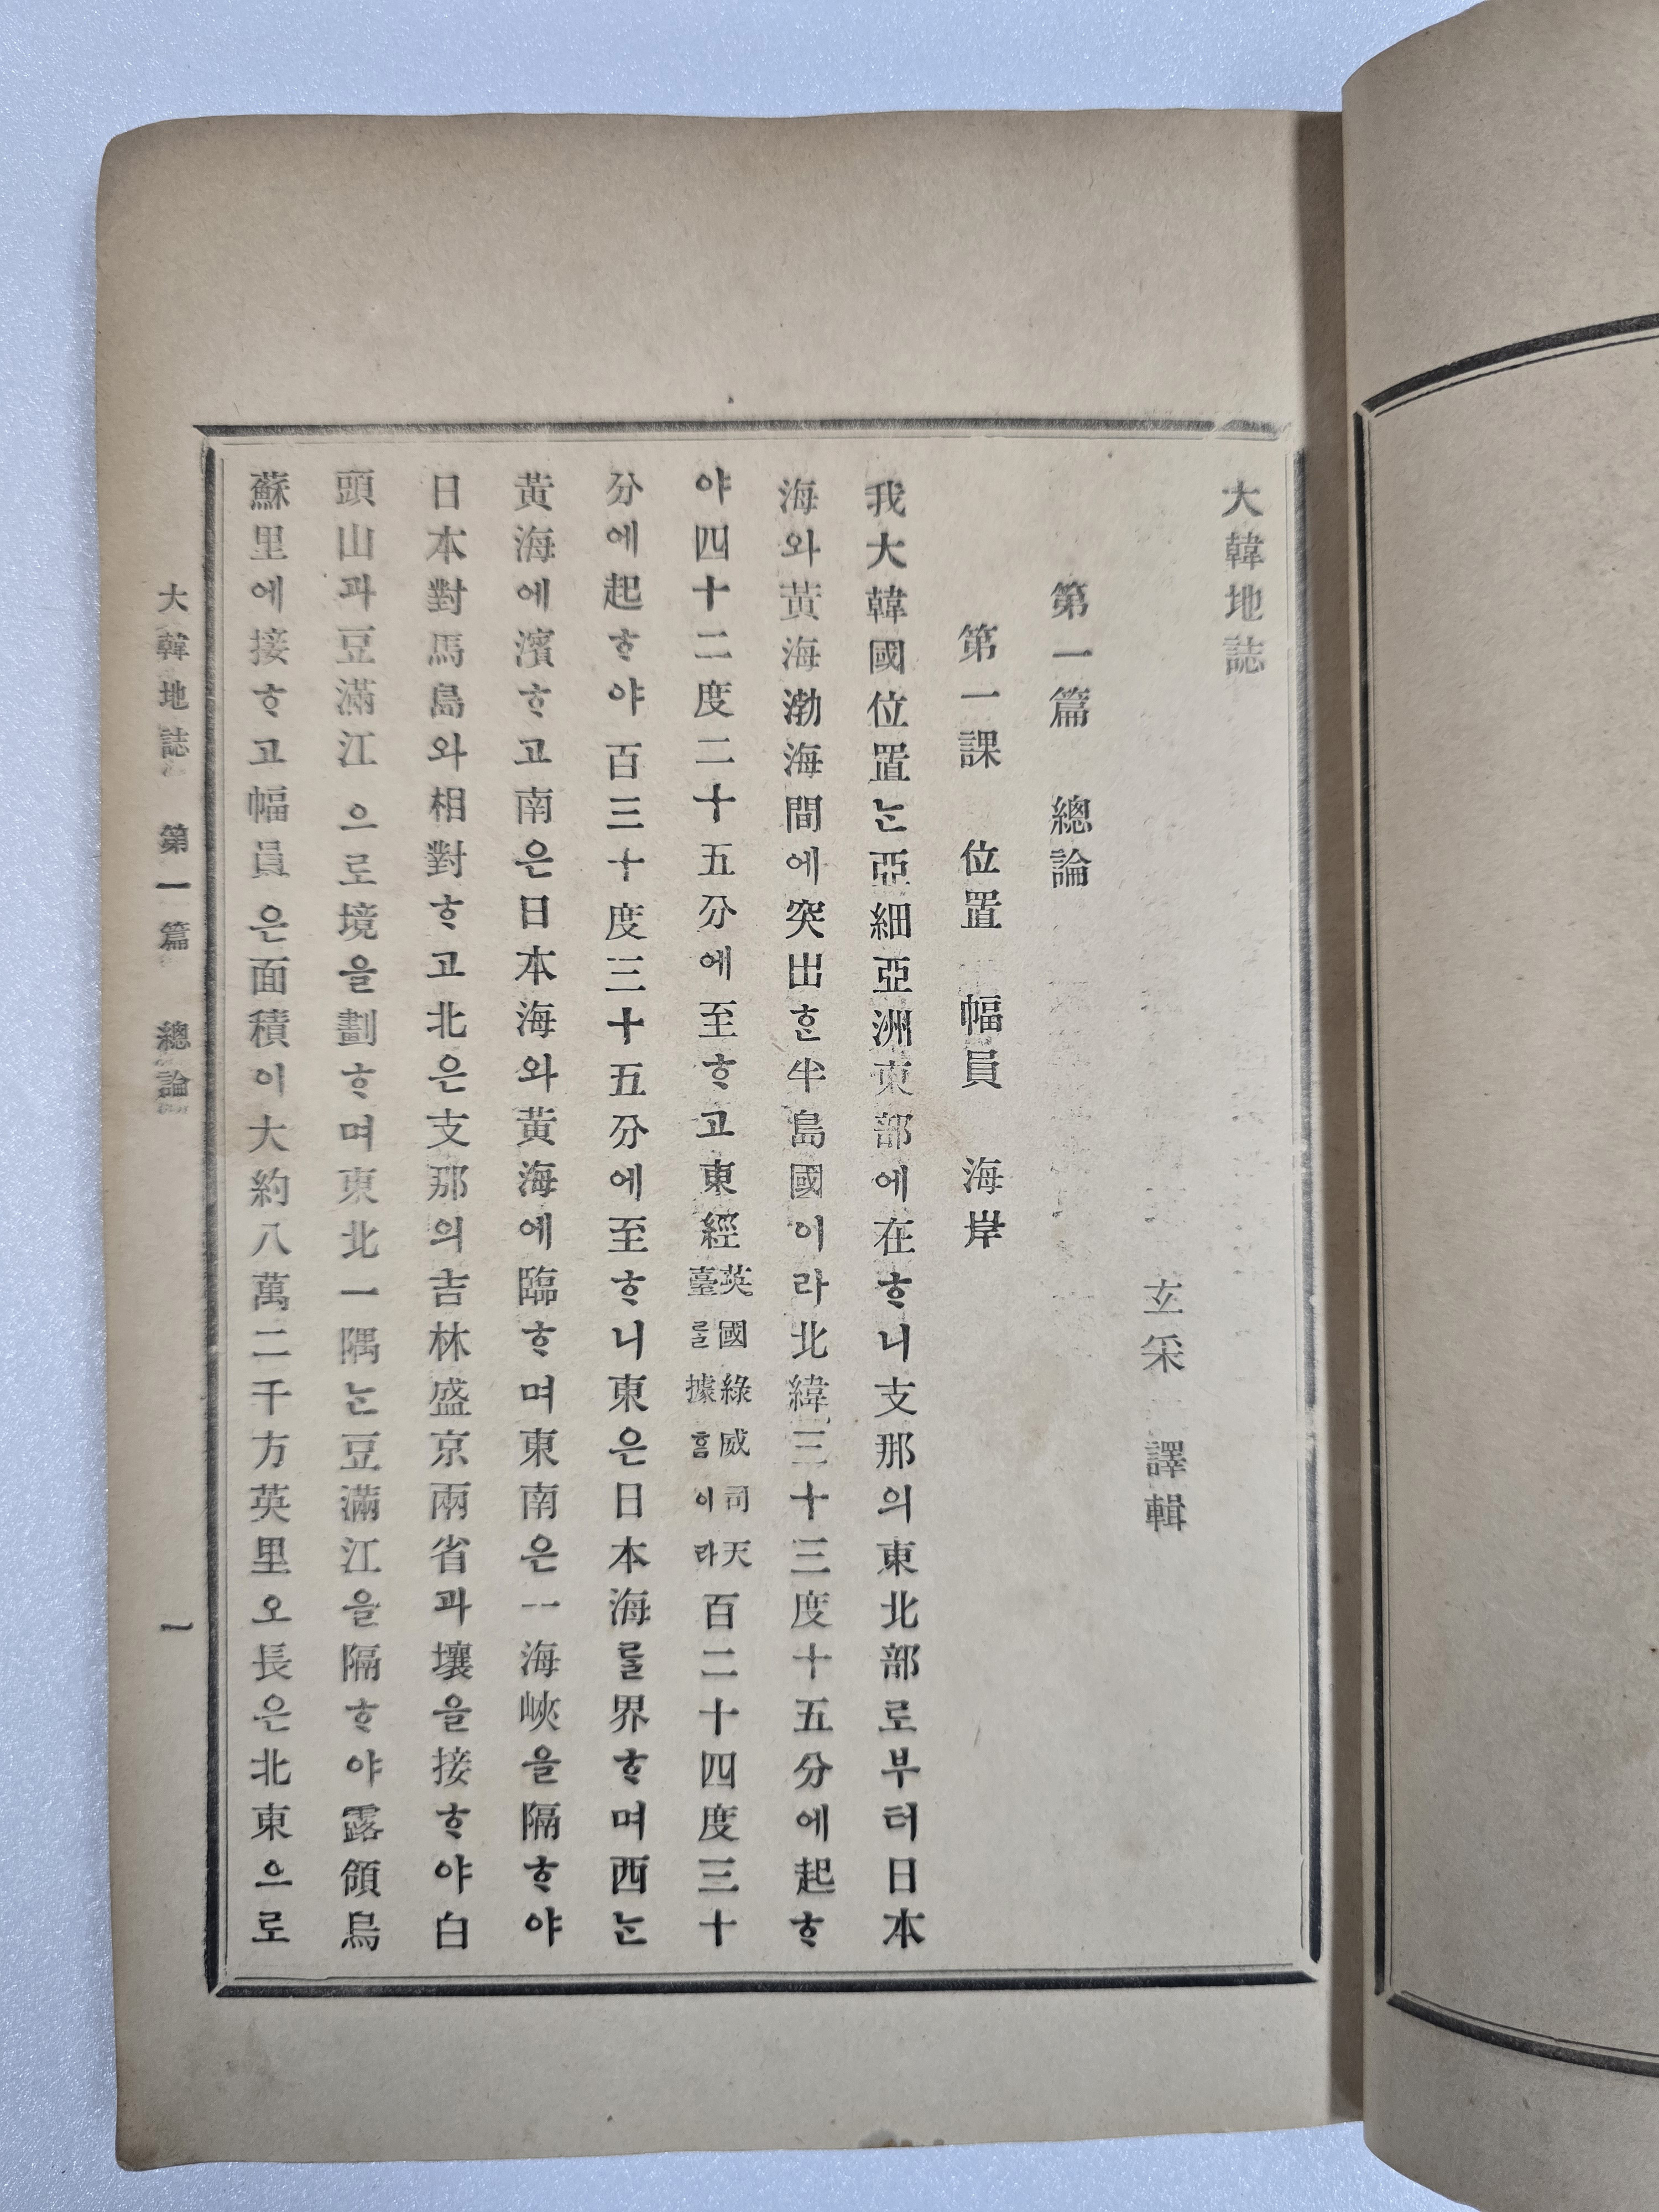 大韓地誌
玄采 譯輯
第一篇 總論
第一課 位置 幅員 海岸
我大韓國位置ᄂᆞᆫ亞細亞洲東部에在ᄒᆞ니支那의東北部로부터日本
海와黃海渤海間에突出ᄒᆞᆫ半島國이라北緯三十三度十五分에起ᄒᆞ
야四十二度二十五分에至ᄒᆞ고東經英國綠威司天臺ᄅᆞᆯ據ᄒᆞᆷ이라百二十四度三十
分에起ᄒᆞ야百三十度三十五分에至ᄒᆞ니東은日本海ᄅᆞᆯ界ᄒᆞ며西ᄂᆞᆫ
黃海에濱ᄒᆞ고南은日本海와黃海에臨ᄒᆞ며東南은一海峽을隔ᄒᆞ야
日本對馬島와相對ᄒᆞ고北은支那의吉林盛京兩省과壤을接ᄒᆞ야白
頭山과豆滿江으로境을劃ᄒᆞ며東北一隅ᄂᆞᆫ豆滿江을隔ᄒᆞ야露領烏
蘇里에接ᄒᆞ고幅員은面積이大約八萬二千方英里오長은北東으로
大韓地誌 第一篇 總論 一